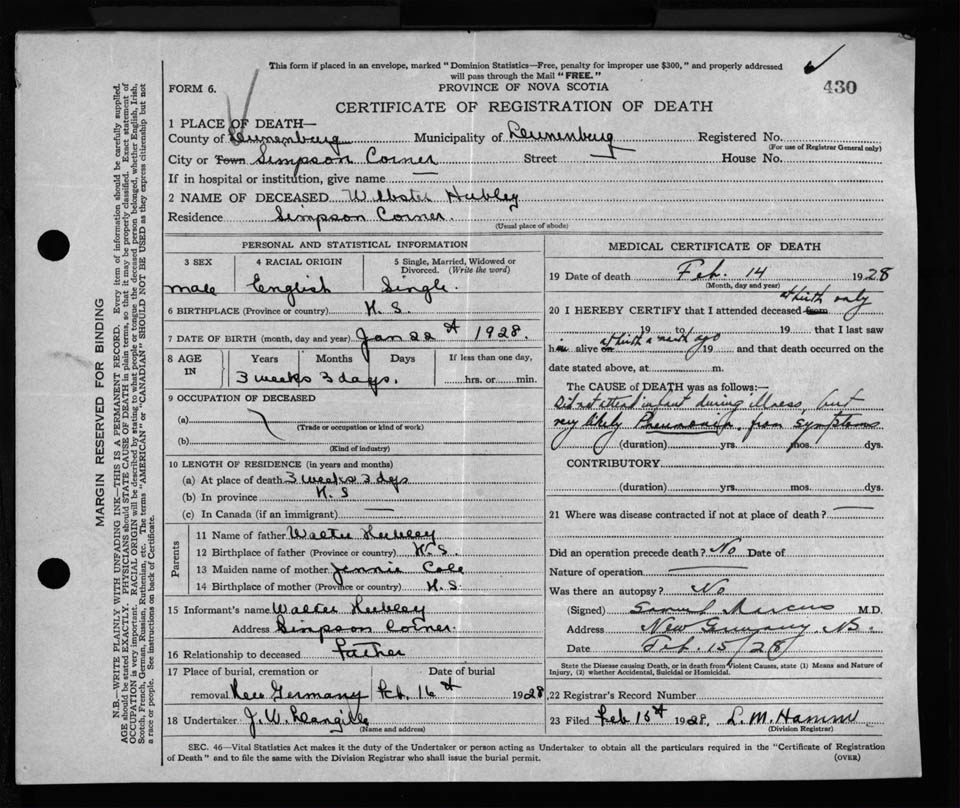 This form if placed in an envelope, marked "Dominion Statistics—Free, penalty for improper use $300," and properly addressed
will pass through the Mail "FREE."
FORM 6.
PROVINCE OF NOVA SCOTIA
430
CERTIFICATE OF REGISTRATION OF DEATH
1 PLACE OF DEATH—
County of Lunenburg Municipality of Lunenburg Registered No.
(For use of Registrar General only)
City or Town Simpson Corner Street House No.
If in hospital or institution, give name —
2 NAME OF DECEASED Webster Hubley
Residence Simpson Corner.
(Usual place of abode)
PERSONAL AND STATISTICAL INFORMATION
3 SEX 4 RACIAL ORIGIN 5 Single, Married, Widowed or Divorced. (Write the word)
male English Single.
6 BIRTHPLACE (Province or country) N. S.
7 DATE OF BIRTH (month, day and year) Jan 22nd 1928.
8 AGE IN Years Months Days If less than one day,
3 weeks 3 days. hrs. or min.
9 OCCUPATION OF DECEASED
(a)
(Trade or occupation or kind of work)
(b)
(Kind of industry)
10 LENGTH OF RESIDENCE (in years and months)
(a) At place of death 3 weeks 3 days
(b) In province N. S
(c) In Canada (if an immigrant) —
Parents
11 Name of father Walter Hubley
12 Birthplace of father (Province or country) N. S.
13 Maiden name of mother Jennie Cole
14 Birthplace of mother (Province or country) N. S.
15 Informant's name Walter Hubley
Address Simpson Corner.
16 Relationship to deceased Father
17 Place of burial, cremation or Date of burial
removal New Germany Feb. 16th 1928
18 Undertaker J. W.
(Name and address)
MEDICAL CERTIFICATE OF DEATH
19 Date of death Feb. 14 1928
(Month, day and year)
at birth only
20 I HEREBY CERTIFY that I attended deceased from
19 to 19 that I last saw
him alive on at birth a month ago 19 and that death occurred on the
date stated above, at m.
The CAUSE of DEATH was as follows:—
Did not attend infant during illness, but
very likely Pneumonia, from symptoms
(duration) yrs. mos. dys.
CONTRIBUTORY
(duration) yrs. mos. dys.
21 Where was disease contracted if not at place of death? —
Did an operation precede death? No Date of
Nature of operation —
Was there an autopsy? No
(Signed) Samuel Marcus M.D.
Address New Germany N.S.
Date Feb. 15/28
State the Disease causing Death, or in death from Violent Causes, state (1) Means and Nature of
Injury, (2) whether Accidental, Suicidal or Homicidal.
22 Registrar's Record Number
23 Filed Feb 15th 1928, L. M. Hamm
(Division Registrar)
SEC. 46—Vital Statistics Act makes it the duty of the Undertaker or person acting as Undertaker to obtain all the particulars required in the "Certificate of Registration
of Death" and to file the same with the Division Registrar who shall issue the burial permit.
(OVER)
MARGIN RESERVED FOR BINDING
N.B.—WRITE PLAINLY WITH UNFADING INK—THIS IS A PERMANENT RECORD. Every item of information should be carefully supplied.
AGE should be stated EXACTLY. PHYSICIANS should STATE CAUSE OF DEATH in plain terms, so that it may be properly classified. Exact statement of
OCCUPATION is very important. RACIAL ORIGIN will be described by stating to what people or tongue the deceased person belonged, whether English, Irish,
Scotch, French, German, Russian, Ruthenian, etc. The terms "AMERICAN" or "CANADIAN" SHOULD NOT BE USED as they express citizenship but not
a race or people. See instructions on back of Certificate.